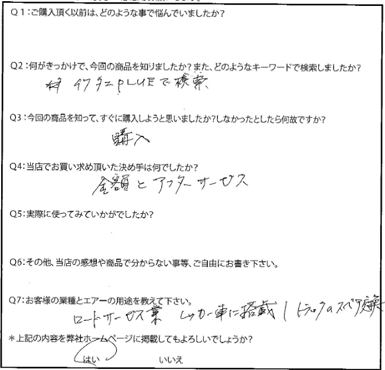 Q1:ご購入頂く以前は、どのような事で悩んでいましたか?
Q2:何がきっかけで、今回の商品を知りましたか?また、どのようなキーワードで検索しましたか?
で検索
Q3:今回の商品を知って、すぐに購入しようと思いましたか?しなかったとしたら何故ですか?
購入
Q4:当店でお買い求め頂いた決め手は何でしたか?
金額とアフターサービス
Q5:実際に使ってみていかがでしたか?
Q6:その他、当店の感想や商品で分からない事等、ご自由にお書き下さい。
Q7:お客様の業種とエアーの用途を教えて下さい。
ロードサービス業 レッカー車に搭載 / トラックのスペア交換
*上記の内容を弊社ホームページに掲載してもよろしいでしょうか?
はい いいえ